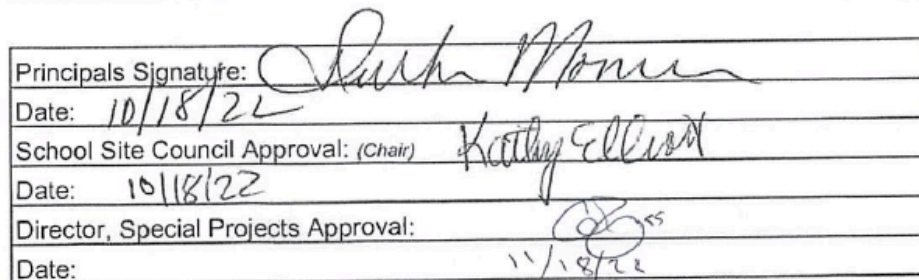 Principals Signature:
Date: 10/18/22
School Site Council Approval: (Chair) Kathy Elliott
Date: 10/18/22
Director, Special Projects Approval:
Date: 11/18/22